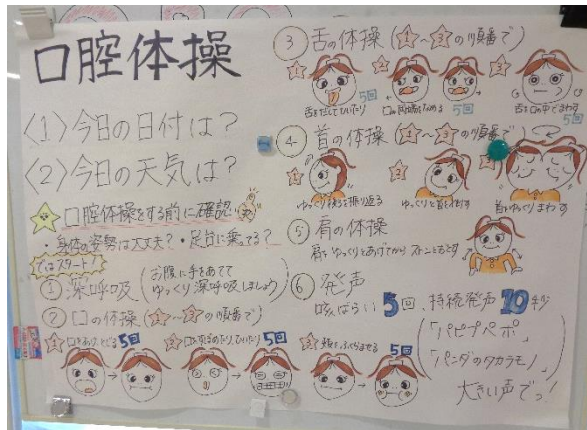 口腔体操
〈1〉今日の日付は？
〈2〉今日の天気は？
口腔体操をする前に確認
・身体の姿勢は大丈夫？・足台に乗ってる？
ではスタート！
① 深呼吸（お腹に手をあてて
ゆっくり深呼吸しましょう）
② 口の体操（☆1～☆3の順番で）
☆1 口をあけ、とじる 5回
☆2 5回
☆3 頬をふくらませる 5回
③ 舌の体操（☆1～☆3の順番で）
☆1 舌をだしてひいたり 5回
☆2 口の両端をなめる 5回
☆3 舌を口の中でまわす 5回
④ 首の体操（☆1～☆3の順番で）
☆1 ゆっくり後ろを振り返る
☆2 ゆっくりと首を
☆3 首をゆっくりまわす
⑤ 肩の体操
肩をゆっくりとあげてから ストンとおとす
⑥ 発声
咳ばらい 5回、持続発声 10秒
「パピプペポ」
「パンダのタカラモノ」
大きい声でっ！